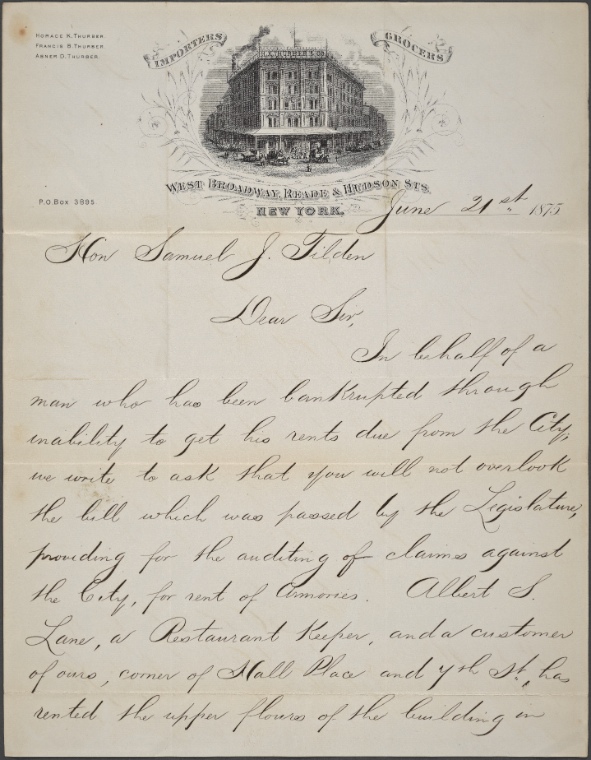 HORACE K. THURBER.
FRANCIS B. THURBER.
ABNER O. THURBER.
IMPORTERS
GROCERS
WEST BROADWAY, READE & HUDSON STS.
NEW YORK.
P.O. Box 3895.
June 21st. 1875
Hon Samuel J. Tilden
Dear Sir,
In behalf of a
man who has been bankrupted through
inability to get his rents due from the City,
we write to ask that you will not overlook
the bill which was passed by the Legislature,
providing for the auditing of claims against
the City, for rent of Armories. Albert S.
Lane, a Restaurant Keeper, and a customer
of ours, corner of Hall Place and 7th St., has
rented the upper floors of the building on